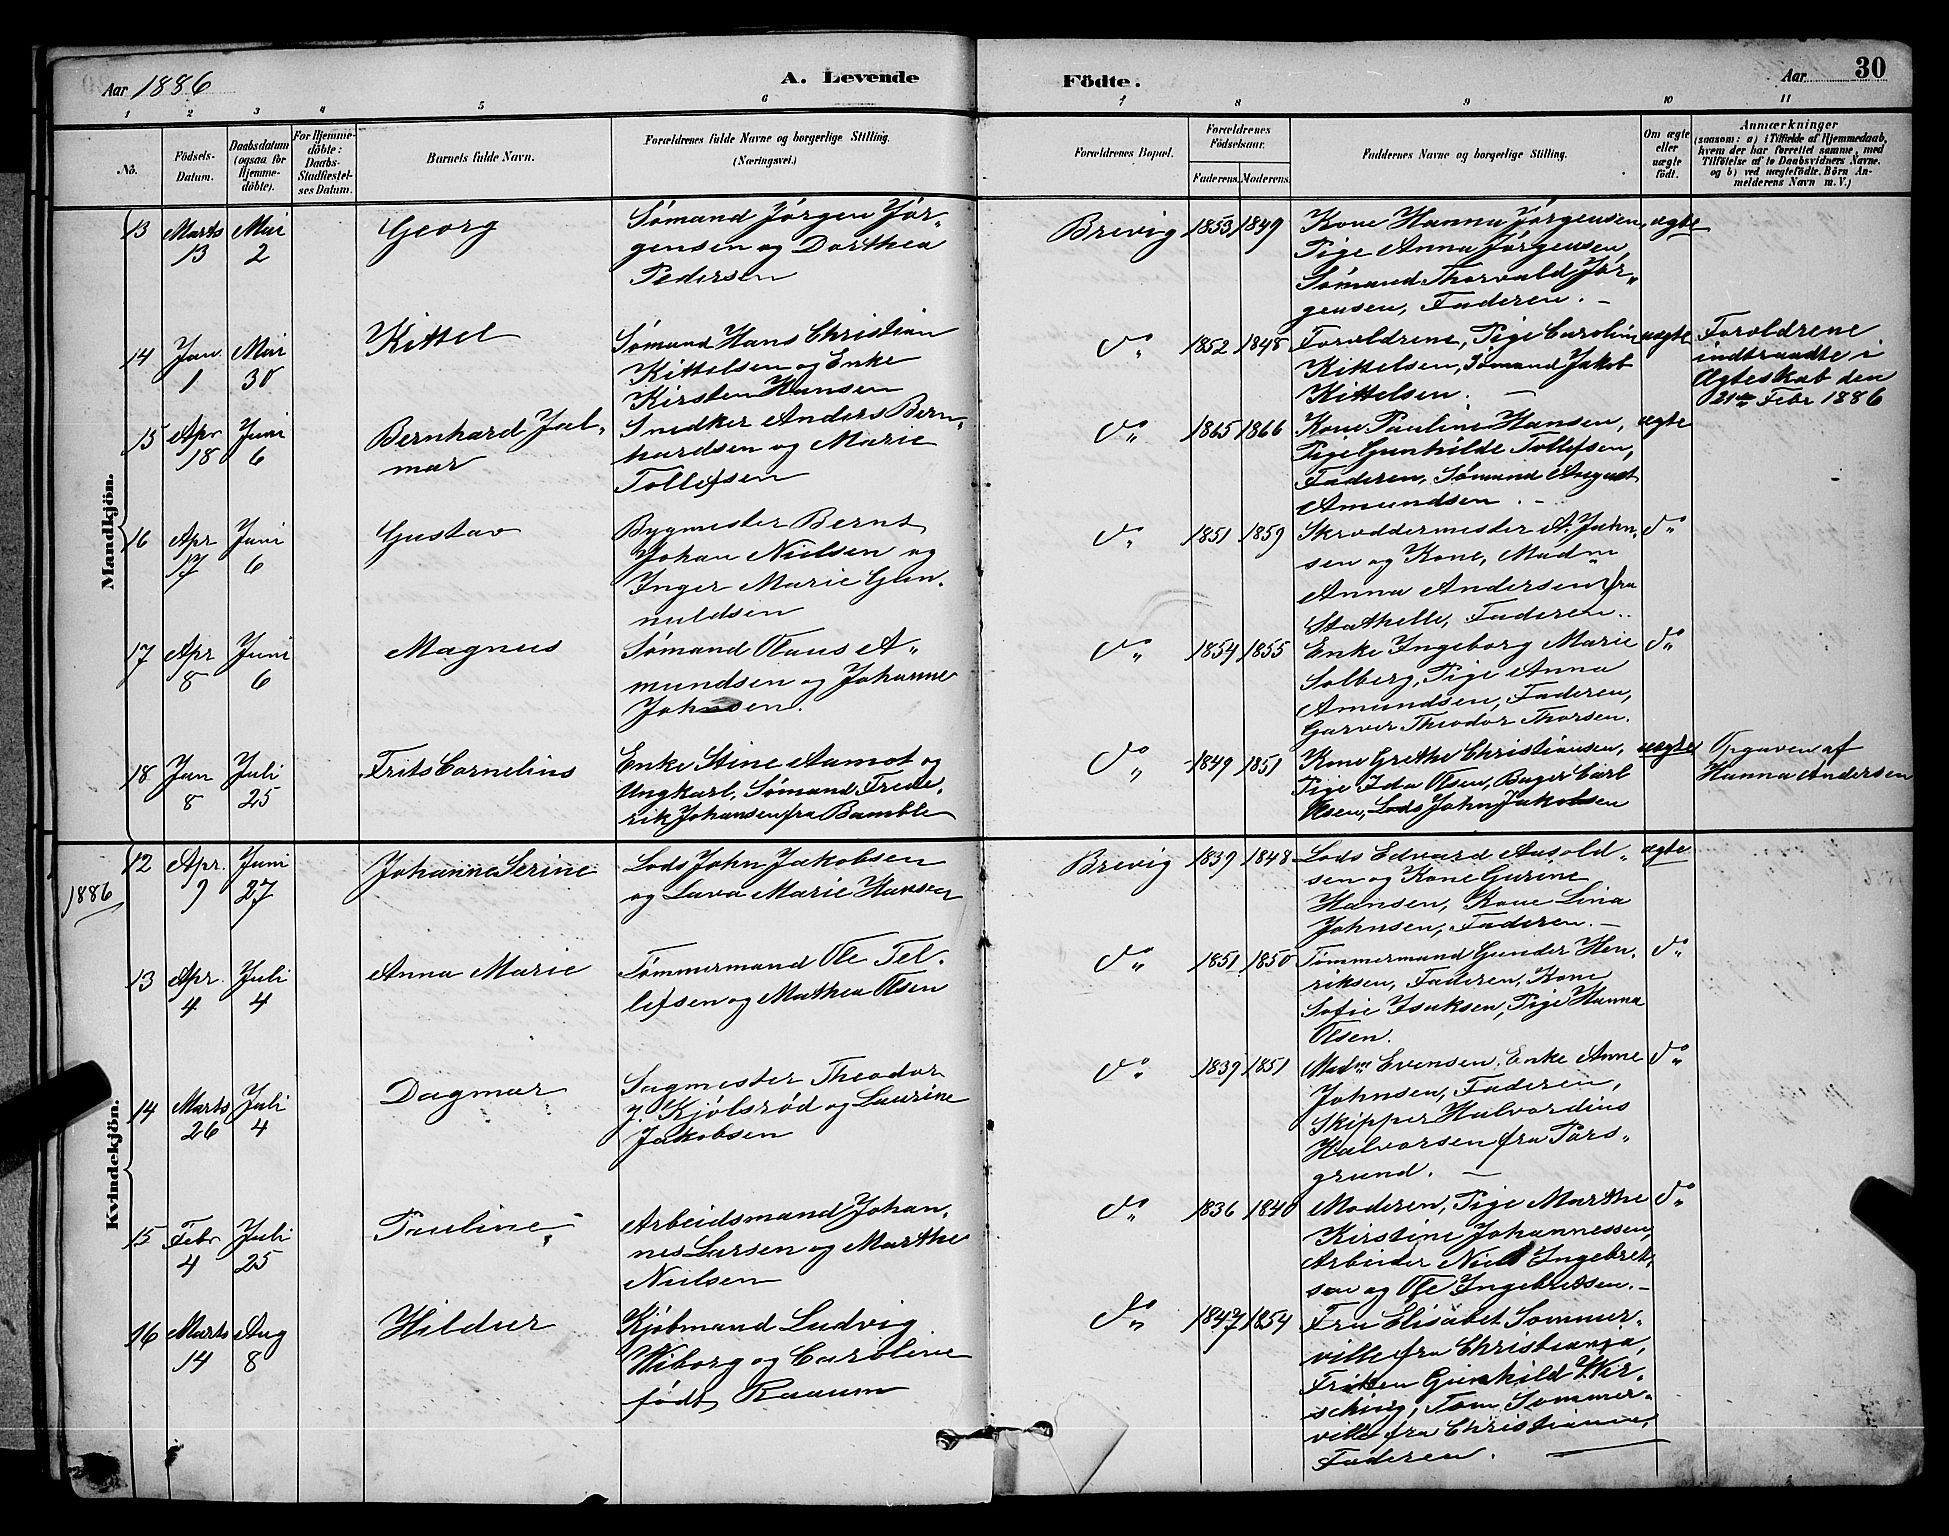 Aar 1886
A. Levende
Födte.
Aar
30
1 2 3 4 5 6 7 8 9 10 11
No.
Födsels-Datum.
Daabsdatum (ogsaa for Hjemme-döbte).
For Hjemme-döbte: Daabs-Stadfæstel-ses Datum.
Barnets fulde Navn.
Forældrenes fulde Navne og borgerlige Stilling.
(Næringsvei.)
Forældrenes Bopæl.
Forældrenes Födselsaar.
Faderens. Moderens.
Faddernes Navne og borgerlige Stilling.
Om ægte eller uægte födt.
Anmærkninger
(saasom: a) i Tilfælde af Hjemmedaab,
hvem der har forrettet samme, med
Tilföielse af to Daabsvidners Navne,
og b) ved uægtefödte Börn An-
melderens Navn m. V.)
Mandkjön.
13 Marts 13 Mai 2 Georg
Sømand Jørgen Jør-
gensen og Dorthea
Pedersen
Brevig 1853 1849
Kone Hanna Jørgensen,
Pige Anna Jørgensen,
Sømand Thorvald Jør-
gensen, Faderen. –
ægte
14 Jan. 1 Mai 30 Kittel
Sømand Hans Christian
Kittelsen og Enke
Kirsten Hansen
Do 1852 1848
Foroldrene, Pige Caroline
Kittelsen, Sømand Jakob
Kittelsen. –
uægte
Foroldrene
indtraadte i
Ægteskab den
21de Febr 1886
15 Apr 18 Juni 6 Bernhard Jal-
mar
Snedker Anders Bern-
hardsen og Marie
Tollefsen
Do 1865 1866
Kone Pauline Hansen,
Pige Gunhilde Tollefsen,
Faderen, Sømand August
Amundsen. –
ægte
16 Apr 17 Juni 6 Gustav
Bygmester Bernt
Johan Nielsen og
Inger Marie Gun-
nuldsen
Do 1851 1859
Skroddermester A. Jahn-
sen og Kone, Madm
Anna Andersen fra
Stathelle, Faderen..
Do
17 Apr 8 Juni 6 Magnus
Sømand Olaus A-
mundsen og Johanne
Johnsen.
Do 1854 1855
Enke Ingeborg Marie
Solberg, Pige Anna
Amundsen, Faderen,
Garver Theodor Thorsen.
Do
18 Jan 8 Juli 25 Frits Cornelius
Enke Stine Aamot og
Ungkarl, Sømand Frede-
rik Johansen fra Bamble
Do 1849 1851
Kone Grethe Christiansen,
Pige Ida Olsen, Bager Carl
Olsen, Lods John Jakobsen
uægte
Opgaven af
Hanna Andersen
1886
Kvindekjön.
12 Apr. 9 Juni 27 Johanne Serine
Lods John Jakobsen
og Lava Marie Hansen
Brevig 1839 1848
Lods Edvard Ausold-
sen og Kone Gurine
Hansen, Kone Lina
Johnsen, Faderen. –
ægte
13 Apr. 4 Juli 4 Anna Marie
Tømmermand Ole Tel-
lefsen og Mathea Olsen
Do 1851 1850
Tømmermand Gunder Hen-
riksen, Faderen, Kone
Sofie Isaksen, Pige Hanna
Olsen.
Do
14 Marts 26 Juli 4 Dagmar
Sagmester Theodor
J. Kjølsrød og Laurine
Jakobsen
Do 1839 1851
Madm Evensen, Enke Anne
Johnsen, Faderen,
Skipper Halvordius
Halvorsen fra Pors-
grund. –
Do
15 Febr 4 Juli 25 Pauline
Arbeidsmand Johan-
nes Larsen og Marthe
Nielsen
Do 1836 1840
Moderen, Pige Marthe
Kirstine Johannessen,
Arbeider Niels Ingebret-
sen og Ole Ingebretsen. –
Do
16 Marts 14 Aug 8 Hildur
Kjøbmand Ludvig
Wiborg og Caroline
født Raaum
Do 1847 1854
Fru Elisabet Sommer-
ville fra Christiania,
Frøken Gunhild Wir-
sching, Tom Sommer-
ville fra Christiania,
Faderen. –